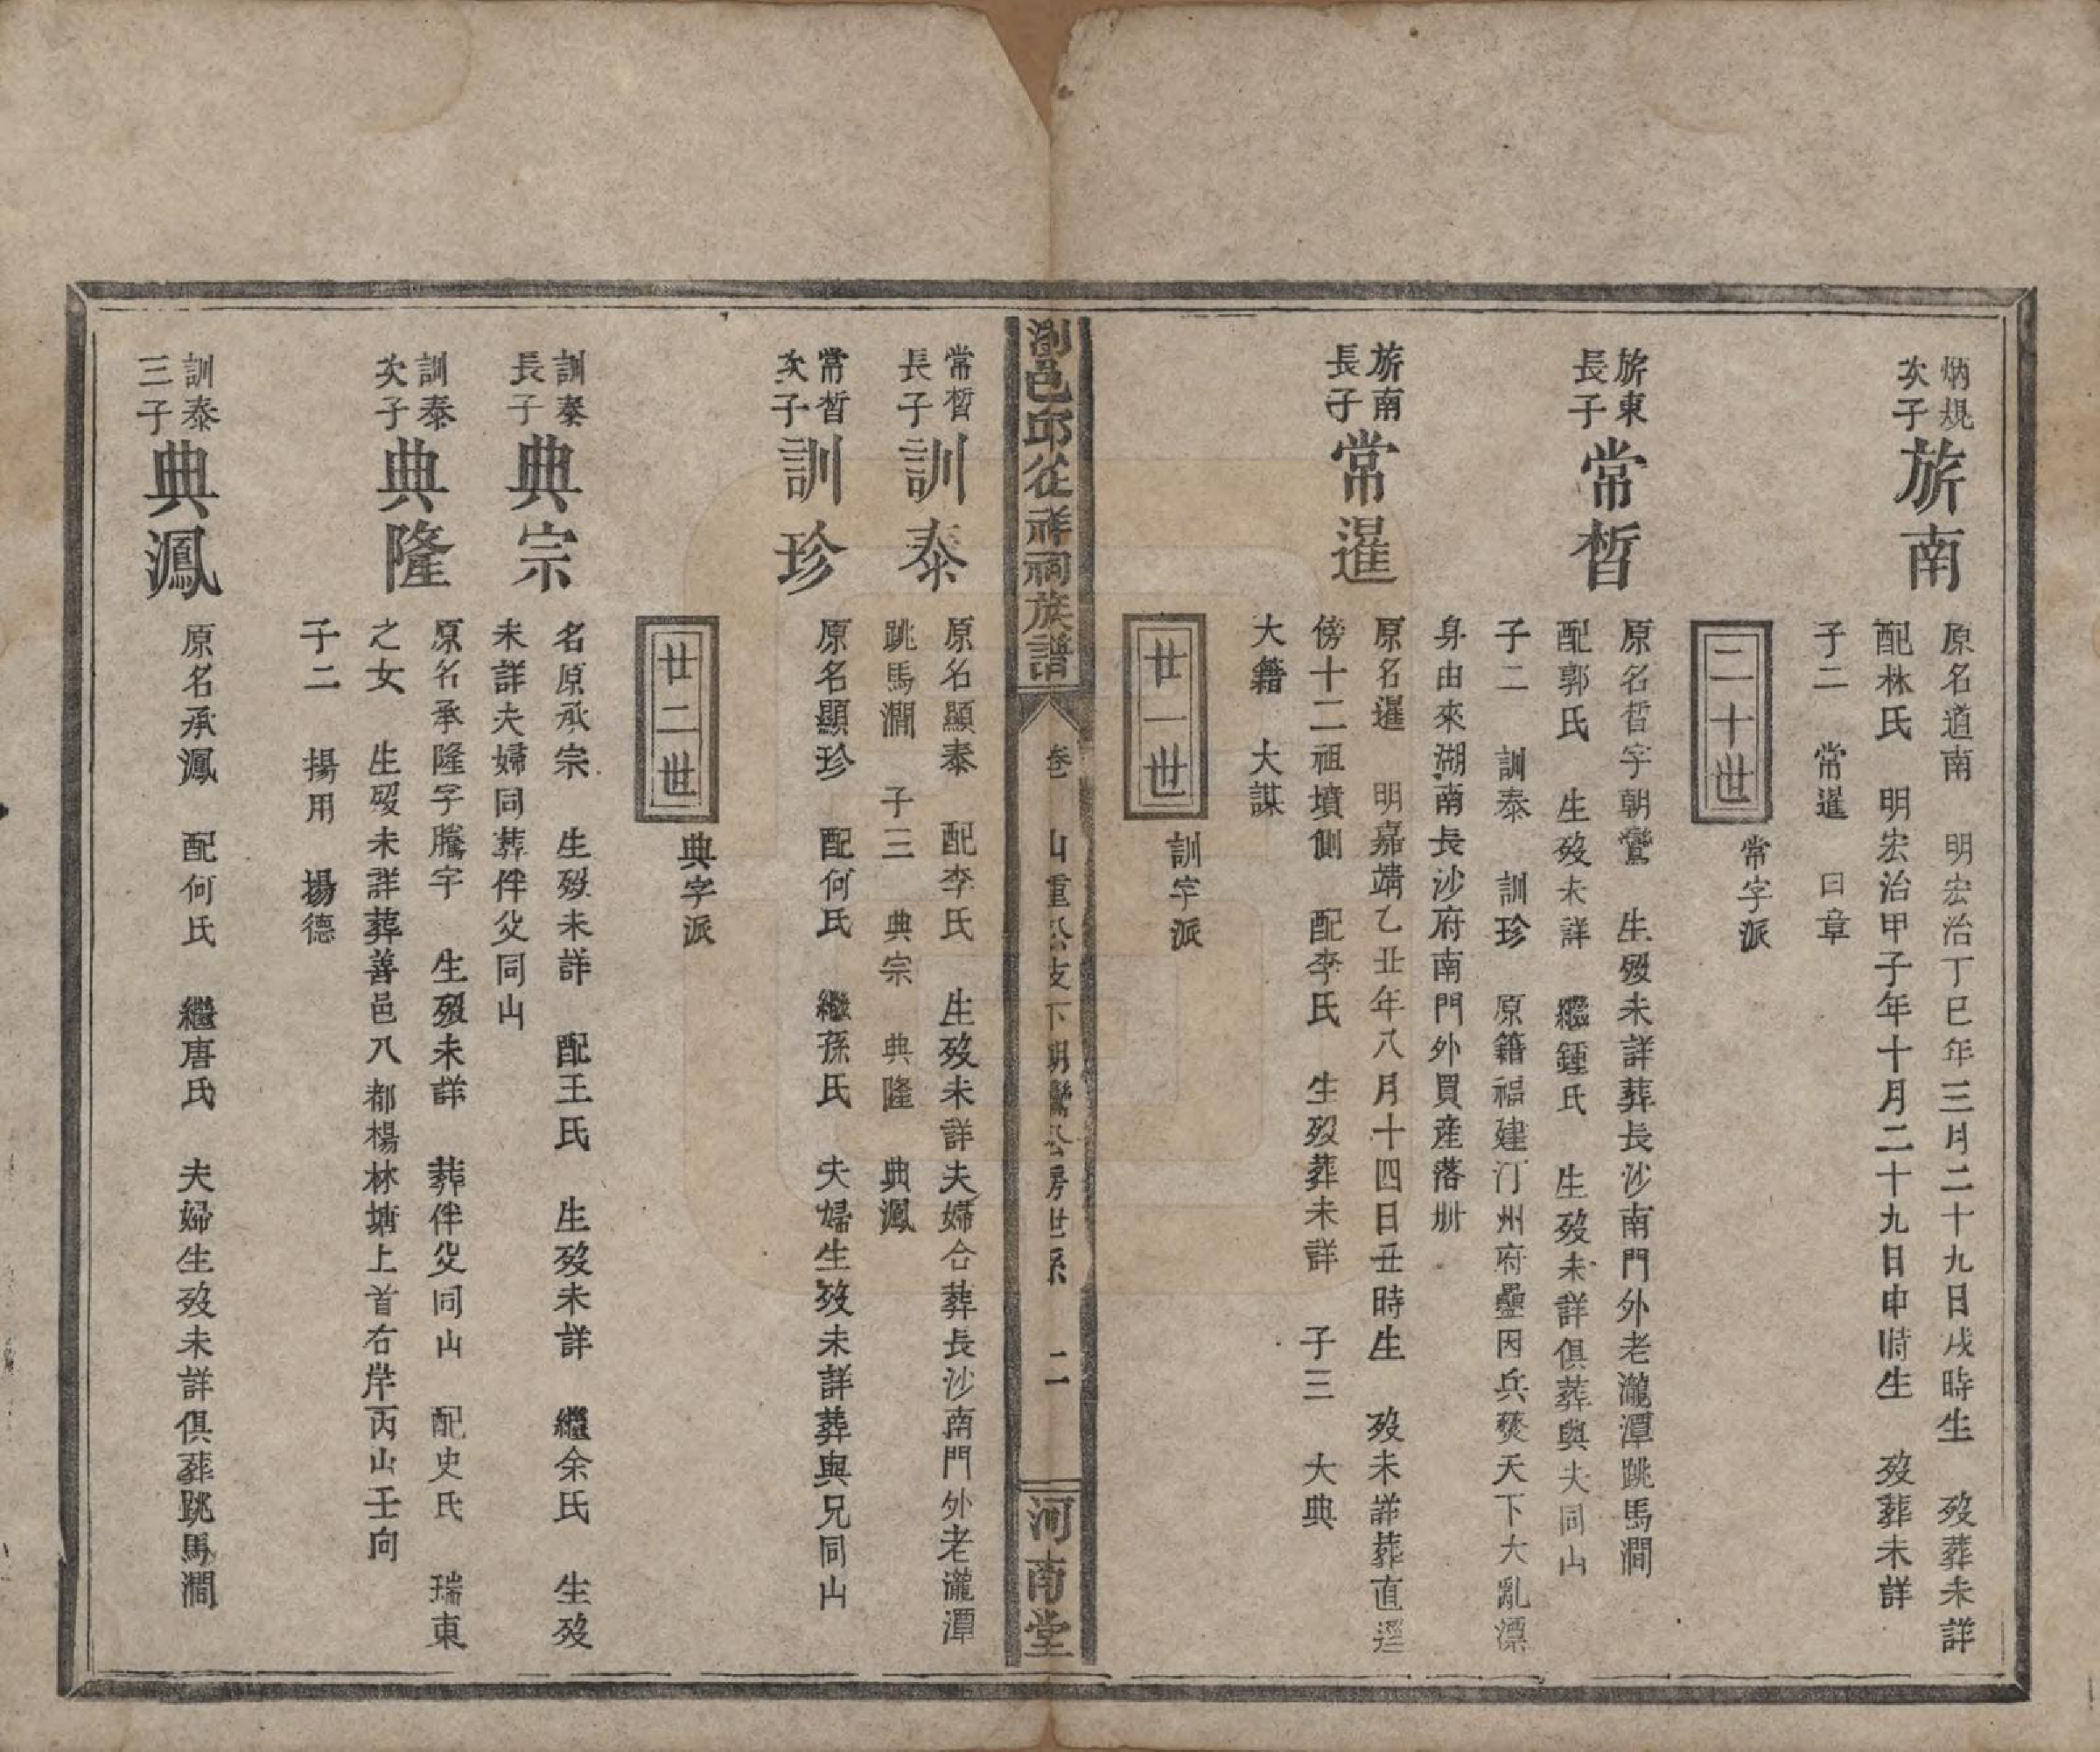 炳規
次子
旂南
原名道南　明宏治丁巳年三月二十九日戌時生　歿葬未詳
配林氏　明宏治甲子年十月二十九日申時生　歿葬未詳
子二　常暹　曰章
二十世
常字派
旂東
長子
常晳
原名晳字朝鸞　生歿未詳葬長沙南門外老瀧潭跳馬澗
配郭氏　生歿未詳　繼鍾氏　生歿未詳俱葬與夫同山
子二　訓泰　訓珍　原籍福建汀州府因兵燹天下大亂漂
身由來湖南長沙府南門外買産落
旂南
長子
常暹
原名暹　明嘉靖乙丑年八月十四日丑時生　歿未詳葬直逕
傍十二祖墳側　配李氏　生歿葬未詳　子三　大典
大籍　大謀
廿一世
訓字派
瀏邑邱從祥祠族譜
卷　山重公支下朝鸞公房世系　二
河南堂
常晳
長子
訓泰
原名顯泰　配李氏　生歿未詳夫婦合葬長沙南門外老瀧潭
跳馬澗　子三　典宗　典隆　典鳳
常晳
次子
訓珍
原名顯珍　配何氏　繼孫氏　夫婦生歿未詳葬與兄同山
廿二世
典字派
訓泰
長子
典宗
名原承宗　生歿未詳　配王氏　生歿未詳　繼余氏　生歿
未詳夫婦同葬伴父同山
訓泰
次子
典隆
原名承隆字騰宇　生歿未詳　葬伴父同山　配史氏　瑞東
之女　生歿未詳葬善邑八都楊林塘上首右岸丙山壬向
子二　揚用　揚德
訓泰
三子
典鳳
原名承鳳　配何氏　繼唐氏　夫婦生歿未詳俱葬跳馬澗